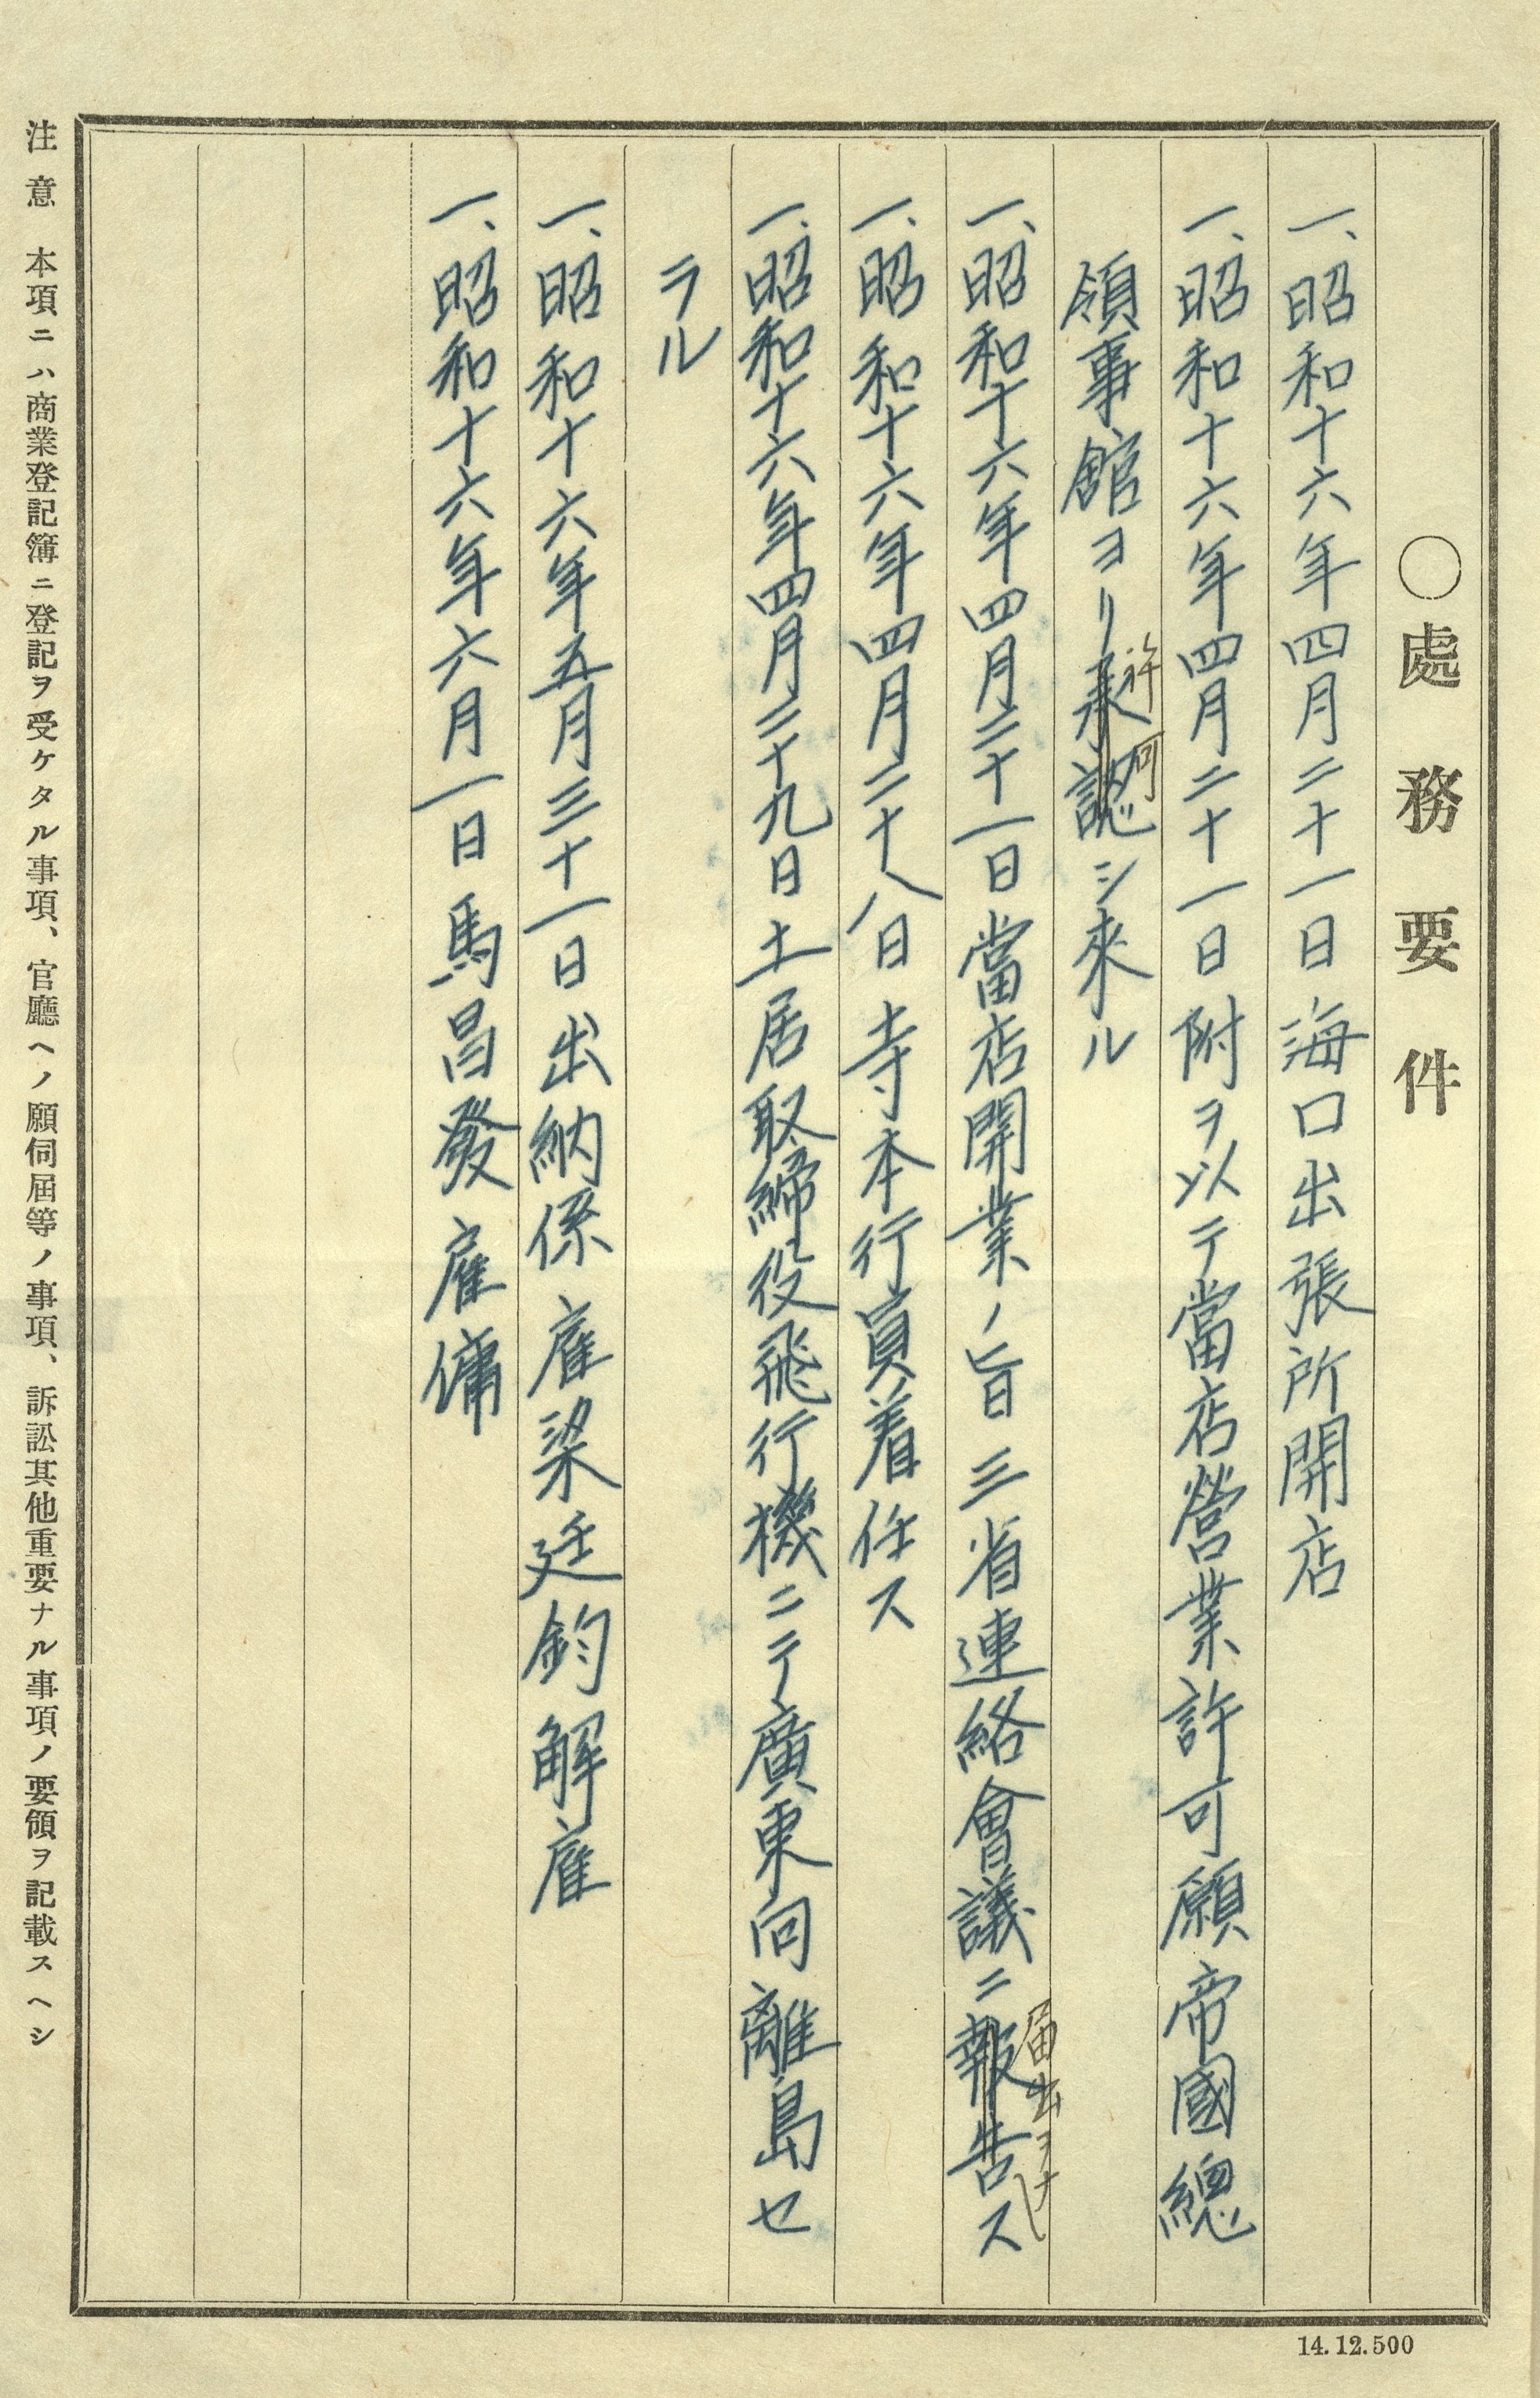 〇處務要件
一、昭和十六年四月二十一日海口出張所開店
一、昭和十六年四月二十一日附ヲ以テ當店營業許可願帝國總
領事館ヨリ承認シ來ル
許可
一、昭和十六年四月二十一日當店開業ノ旨三省連絡會議ニ報告ス
届出ヲナシ
一、昭和十六年四月二十八日寺本行員着任ス
一、昭和十六年四月二十九日土居取締役飛行機ニテ廣東向離島セ
ラル
一、昭和十六年五月三十一日出納係雇梁廷鈞解雇
一、昭和十六年六月一日馬昌發雇傭
注意 本項ニハ商業登記簿ニ登記ヲ受ケタル事項、官廳ヘノ願伺屆等ノ事項、訴訟其他重要ナル事項ノ要領ヲ記載スヘシ
14.12.500